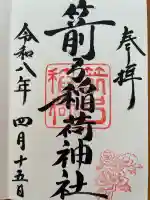 奉拝
箭弓稲荷神社
令和八年 四月十五日